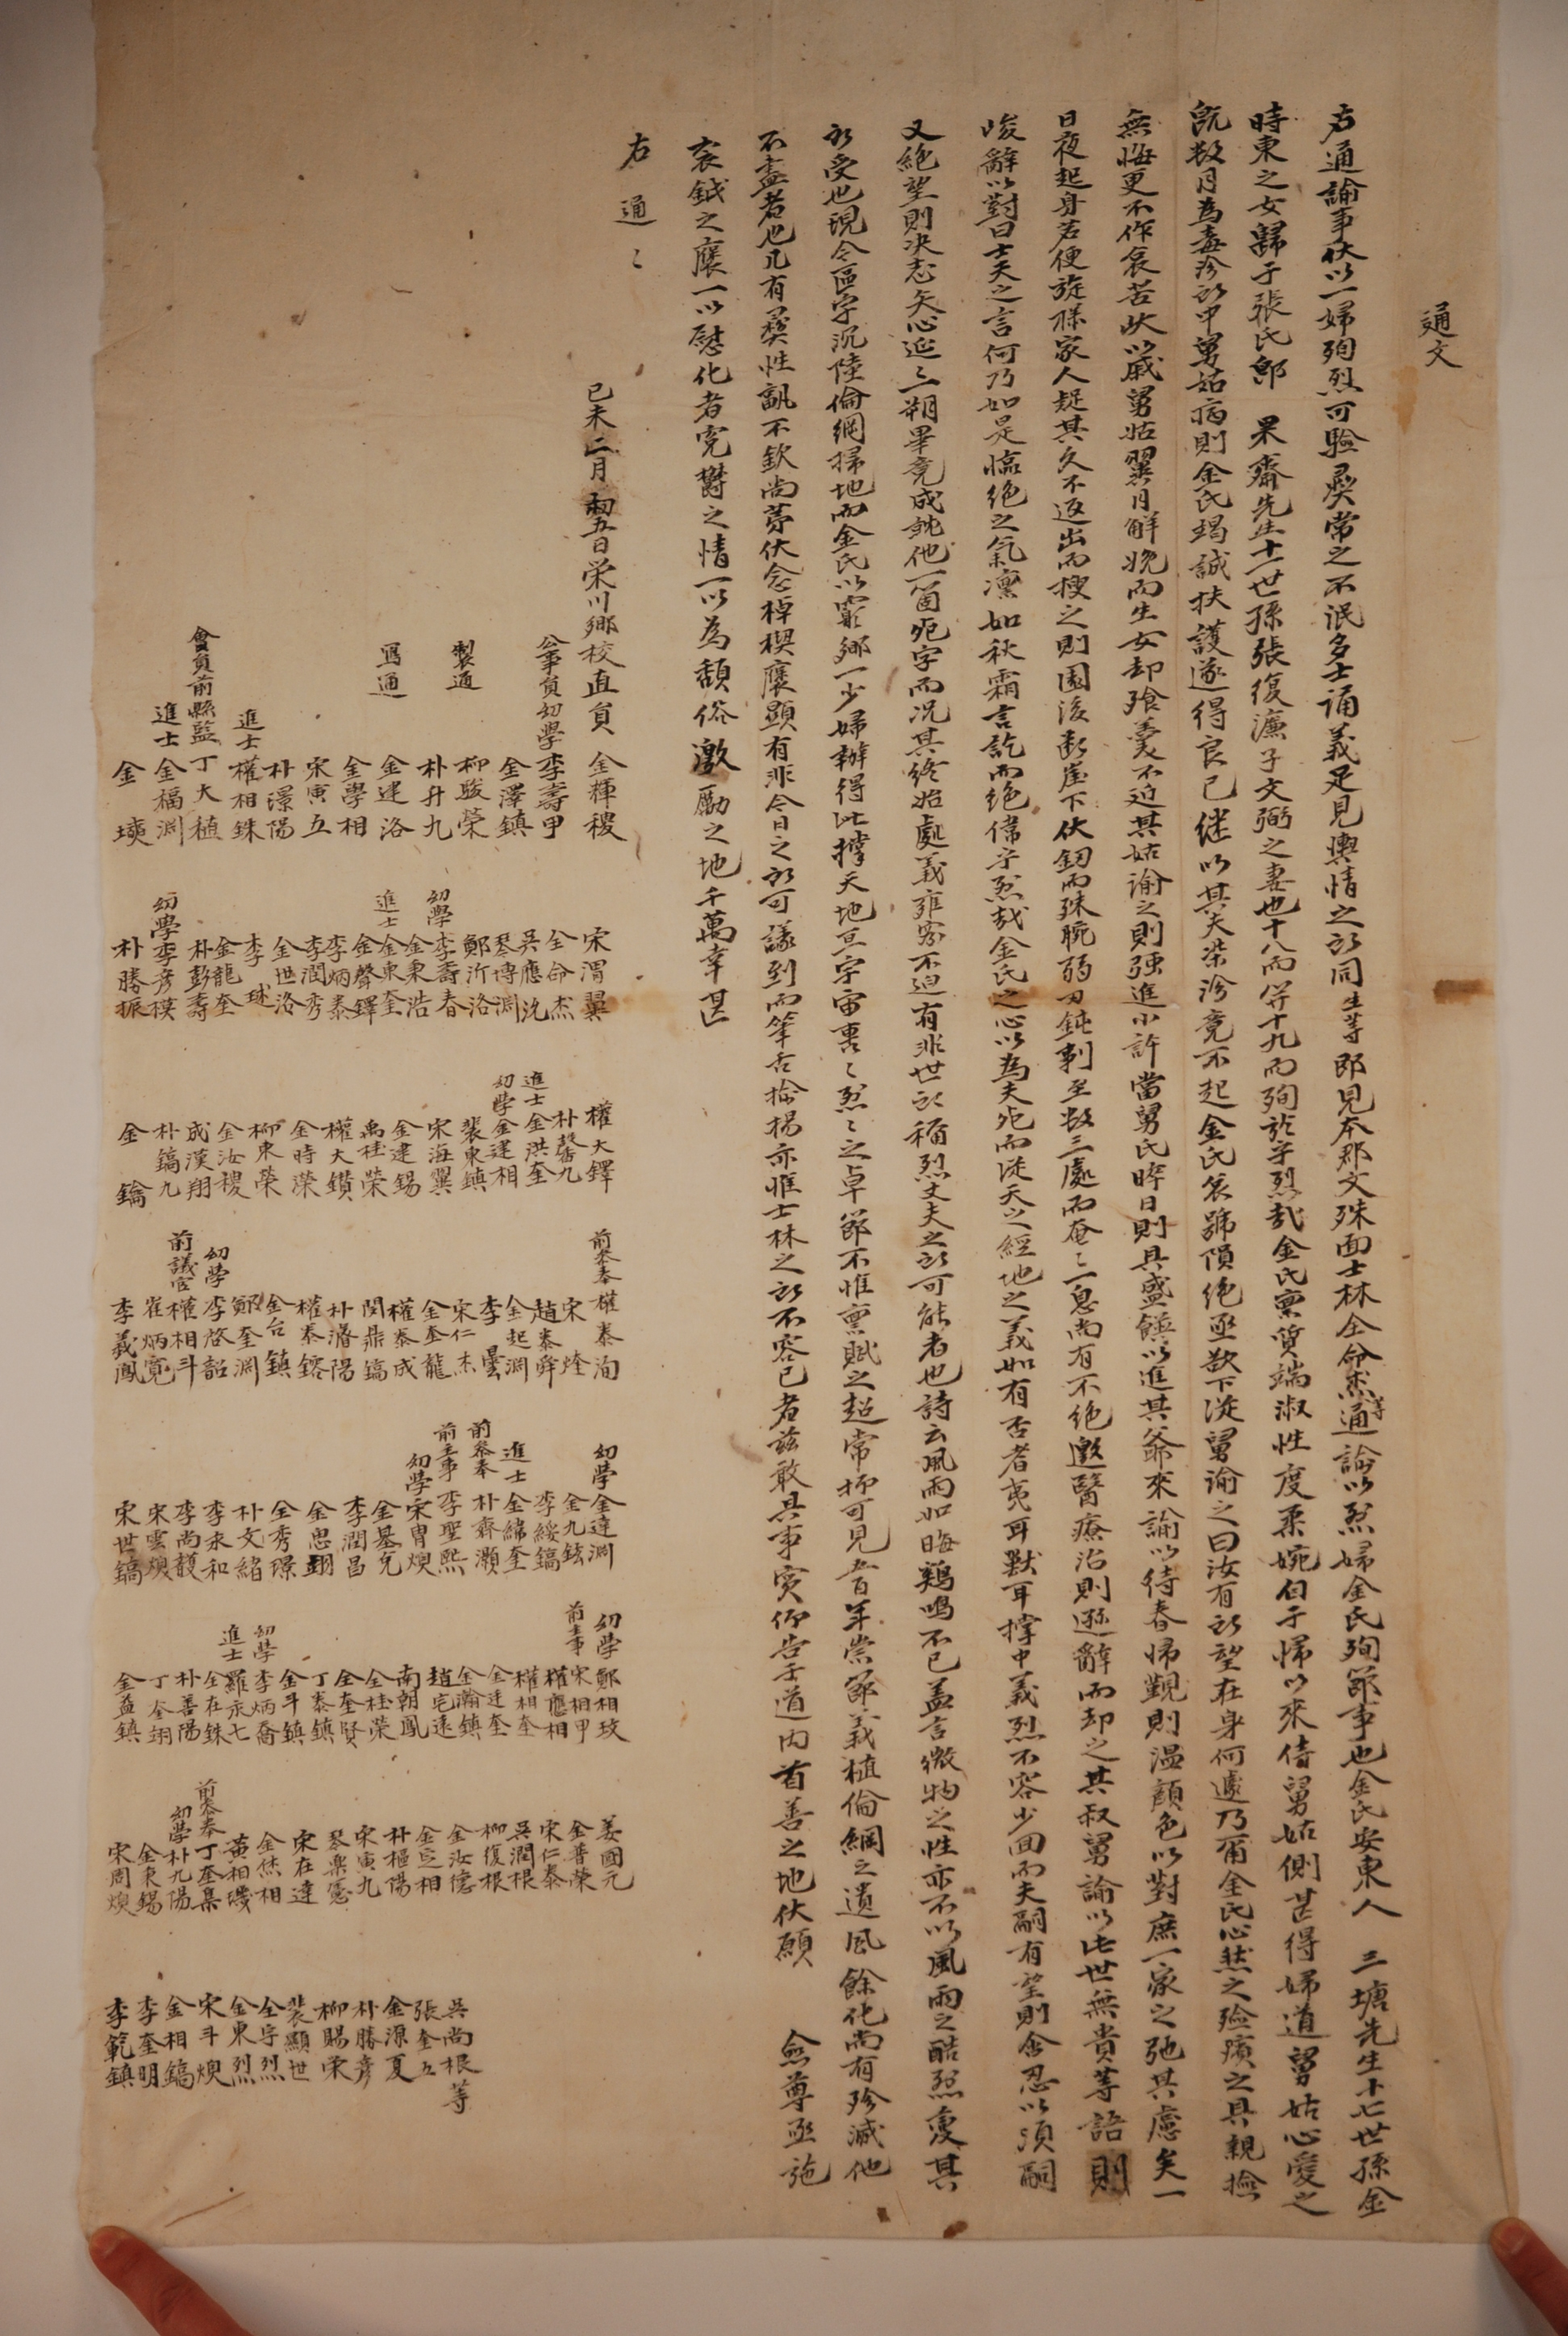 通文
右通諭事伏以一婦殉烈可驗彛常之不泯多士誦義足見輿情之所同生等卽見本郡文殊面士林全命杰等通諭以烈婦金氏殉節事也金氏安東人 三塘先生十七世孫金
時東之女歸于張氏郞 果齋先生十一世孫張復濂子文弼之妻也十八而笄十九而殉於乎烈哉金氏稟質端淑性度柔婉自于歸以來侍舅姑側甚得婦道舅姑心愛之
旣數月爲毒沴所中舅姑病則金氏竭誠扶護遂得良已繼以其夫染沴竟不起金氏哀號隕絶亟欲下從舅諭之曰汝有所望在身何遽乃爾金氏心然之殮殯之具親撿
無悔更不作哀苦狀以戚舅姑翼月解娩而生女却飱羹不近其姑諭之則强進小許當舅氏晬日則具盛饌以進其爺來諭以待春歸覲則溫顔色以對庶一家之弛其慮矣一
日夜起身若便旋樣家人疑其久不返出而搜之則園後斷崖下伏釰而殊腕弱刃鈍剚至數三處而奄〻一息尙有不絶邀醫療治則遜辭而却之其叔舅諭以此世無貴等語則
峻辭以對曰士夫之言何乃如是臨絶之氣凜如秋霜言訖而絶偉乎烈哉金氏之心以爲夫死而從天之經地之義如有否者夷耳獸耳撑中義烈不容少回而夫嗣有望則含忍以須嗣
又絶望則决志矢心延至三朔畢竟成就他一箇死字而况其終始處義雍容不迫有非世所稱烈丈夫之所可能者也詩云風雨如晦鷄鳴不已盖言微物之性亦不以風雨之酷烈變其
所受也現今區宇沉陸倫綱掃地而金氏以窮鄕一少婦辦得此撑天地亘宇宙轟〻烈〻之卓節不惟稟賦之超常抑可見五百年崇節義植倫綱之遺風餘化尙有殄滅他
不盡者也凡有彛性孰不欽尙第伏念棹楔褒顯有非今日之所可議到而筆舌揄揚亦惟士林之所不容已者玆敢具事實仰告于道內首善之地伏願 僉尊亟施
袞鉞之褒一以慰化者寃鬱之情一以爲頹俗激勵之地千萬幸甚
右 通 〻
己未二月初五日榮川鄕校直員 金輝稷 宋渭翼 權大鐸 前參奉 權泰洵 幼學 金達淵 幼學 鄭相玫 姜國元
公事員幼學李壽甲 全命杰 朴馨九 宋烇 金九鉉 前主事 宋相甲 金普榮
金澤鎭 吳應沈 進士 金洪奎 趙泰舜 李綏鎬 權應相 宋仁泰
製通 柳駿榮 琴博淵 幼學 金建相 金起淵 進士 金緯奎 權相奎 吳潤根
朴升九 鄭沂洛 裴東鎭 李曇 前參奉 朴齊灝 金達奎 柳復根
寫通 金建洛 幼學 李壽春 宋海翼 宋仁杰 前主事 李聖熙 金瀚鎭 金汝德 吳尙根 等
金學相 金秉浩 金建錫 金奎龍 幼學 宋胄煥 趙宅遠 金定相 張奎五
宋寅五 進士 金東奎 禹桂榮 權泰成 金基允 南朝鳳 朴樞陽 金源夏
朴漴陽 金聲鐸 權大鑽 閔鼎鎬 李潤昌 金桂榮 宋寅九 朴勝彦
進士 權相銖 李炳泰 金時濚 朴濳陽 金思翊 金奎賢 琴樂憲 柳賜榮
會員前縣監 丁大植 李潤秀 柳東榮 權泰鎔 金秀璟 丁泰鎭 宋在達 裴顯世
進士 金福淵 金世洛 金汝稷 金台鎭 朴文紹 金斗鎭 金烋相 全宇烈
金𤨿 李球 成漢翔 鄭奎淵 李永和 幼學 李炳喬 黃相璣 金東烈
金龍奎 朴鎬九 幼學 李啓韶 李尙馥 進士 羅永七 前參奉 丁奎集 宋斗煥
朴彭壽 金鑰 前議官 權相斗 宋雲煥 全在銖 幼學 朴九陽 金相鎬
幼學 李彦模 崔炳寬 宋世鎬 朴善陽 金東錫 李奎明
朴勝振 李義鳳 丁奎翊 宋周煥 李範鎭
金益鎭